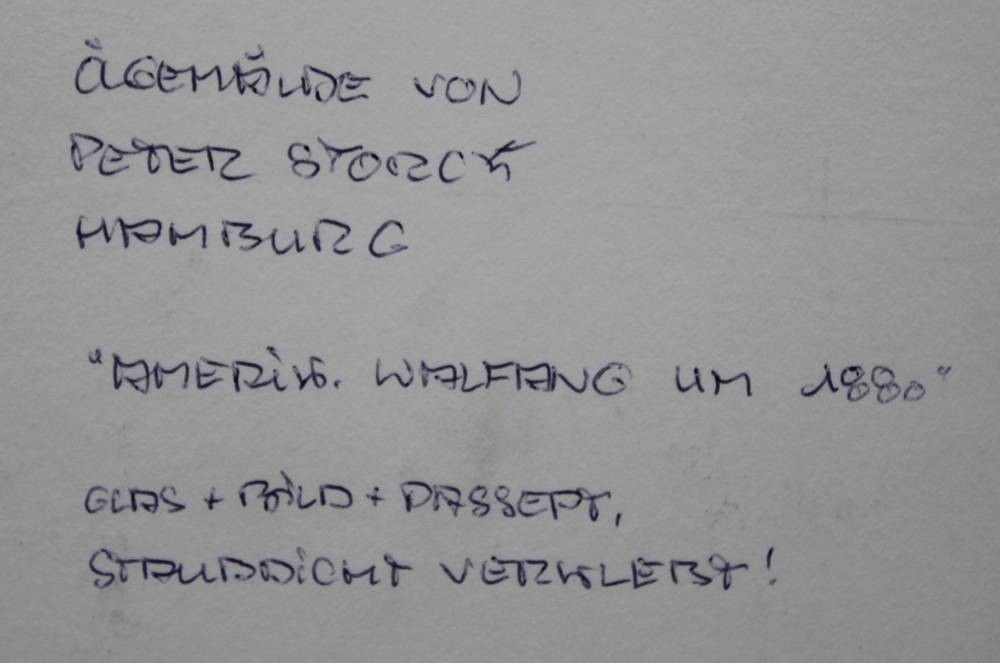 ÖLGEMÄLDE VON
PETER STORCK
HAMBURG
"AMERIK. WALFANG UM 1880"
GLAS + BILD + PASSEPT,
STAUBDICHT VERKLEBT!